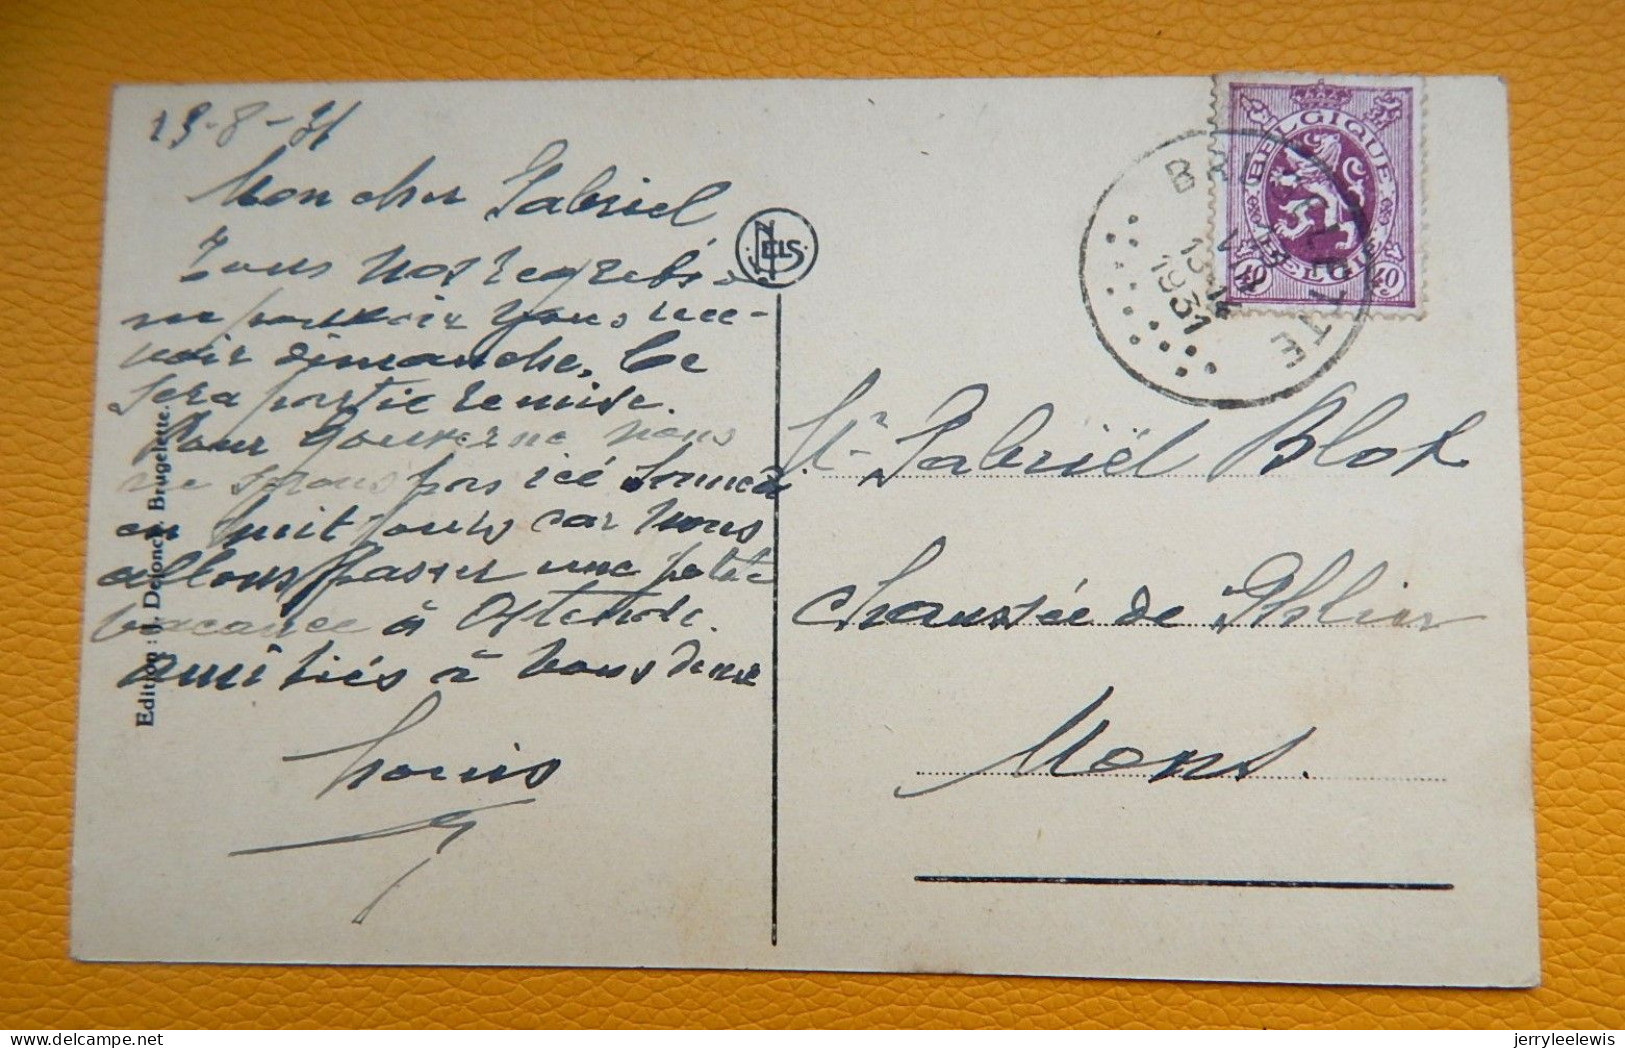 13-8-31
Mon cher Gabriel
Tous nos regrets de
ne pouvoir vous rece-
voir dimanche. Ce
sera partie remise.
Pour gouverne nous
ne serons pas ici
en huit jours car nous
allons passer une petite
vacance à Ostende.
amitiés à vous deux
Louis
Edition : J. Dejoncq, Brugelette.
NELS
BELGIQUE
BELGIE
40 40
BRUGELETTE
13
1931
Mr Gabriël Blot
Chaussée de
Mons.
jerryleelewis